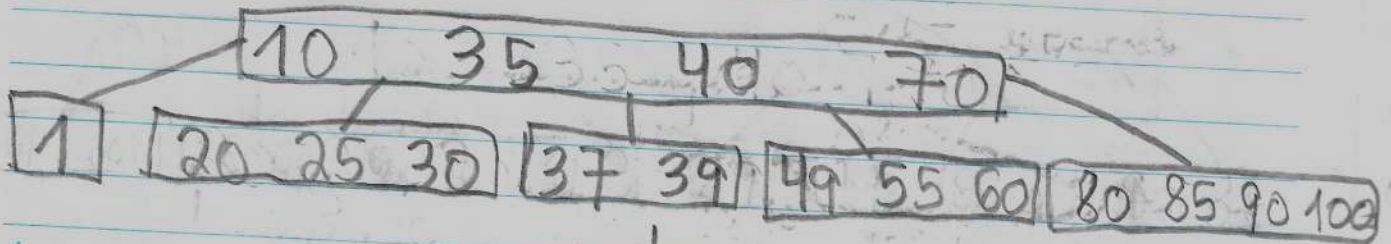 10 35 40 70
1 20 25 30 37 39 49 55 60 80 85 90 100